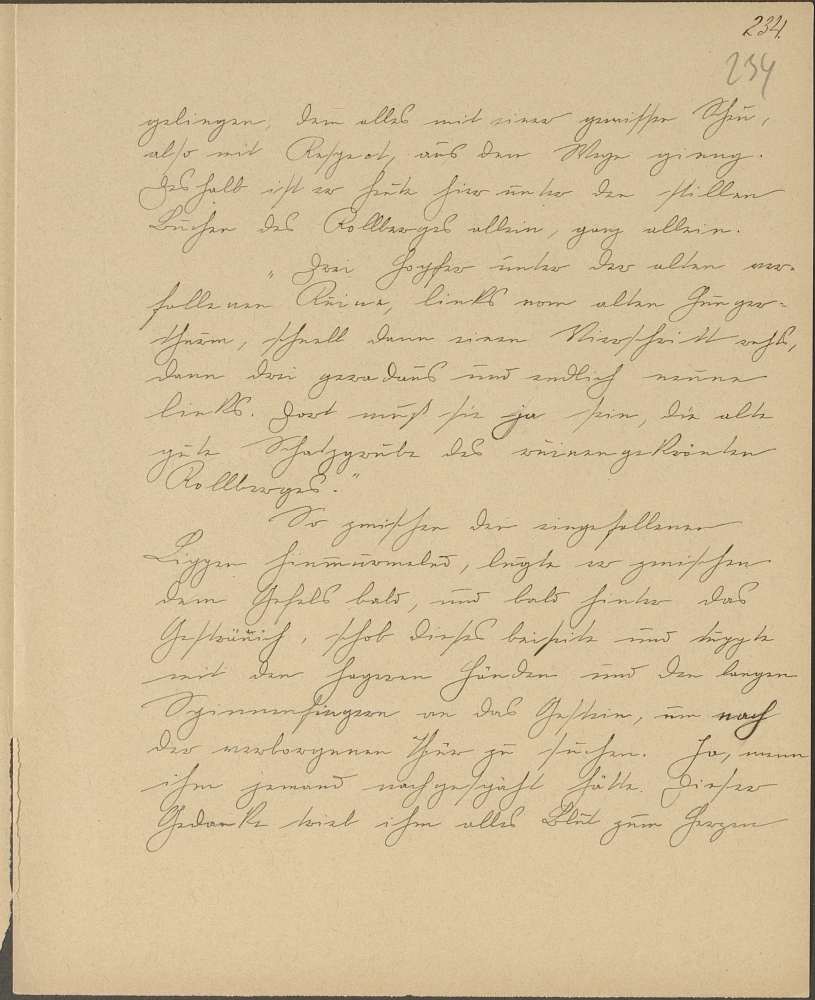 234.
234
gelingen, dem alles mit einer gewissen Scheu,
also mit Respect, aus dem Wege gieng.
Deshalb ist er heute hier unter den stillen
Buchen des Rollberges allein, ganz allein.
„Drei Hopser unter der alten ver-
fallenen Ruine, links vom alten Hunger-
thurm, schnell dann einen Vierschritt rechts,
dann drei geradaus und endlich neune
links. Dort muß sie ja sein, die alte
gute Schatzgrube des ruinengekrönten
Rollberges."
So zwischen den eingefallenen
Lippen hinmurmelnd, lugte er zwischen
dem Gefels bald, und bald hinter das
Gesträuch, schob dieses beiseite und tuppte
mit den hageren Händen und den langen
Spinnenfingern an das Gestein, um nach
der verborgenen Thür zu suchen. Ha, wenn
ihm jemand nachgespäht hätte. Dieser
Gedanke trieb ihm alles Blut zum Herzen